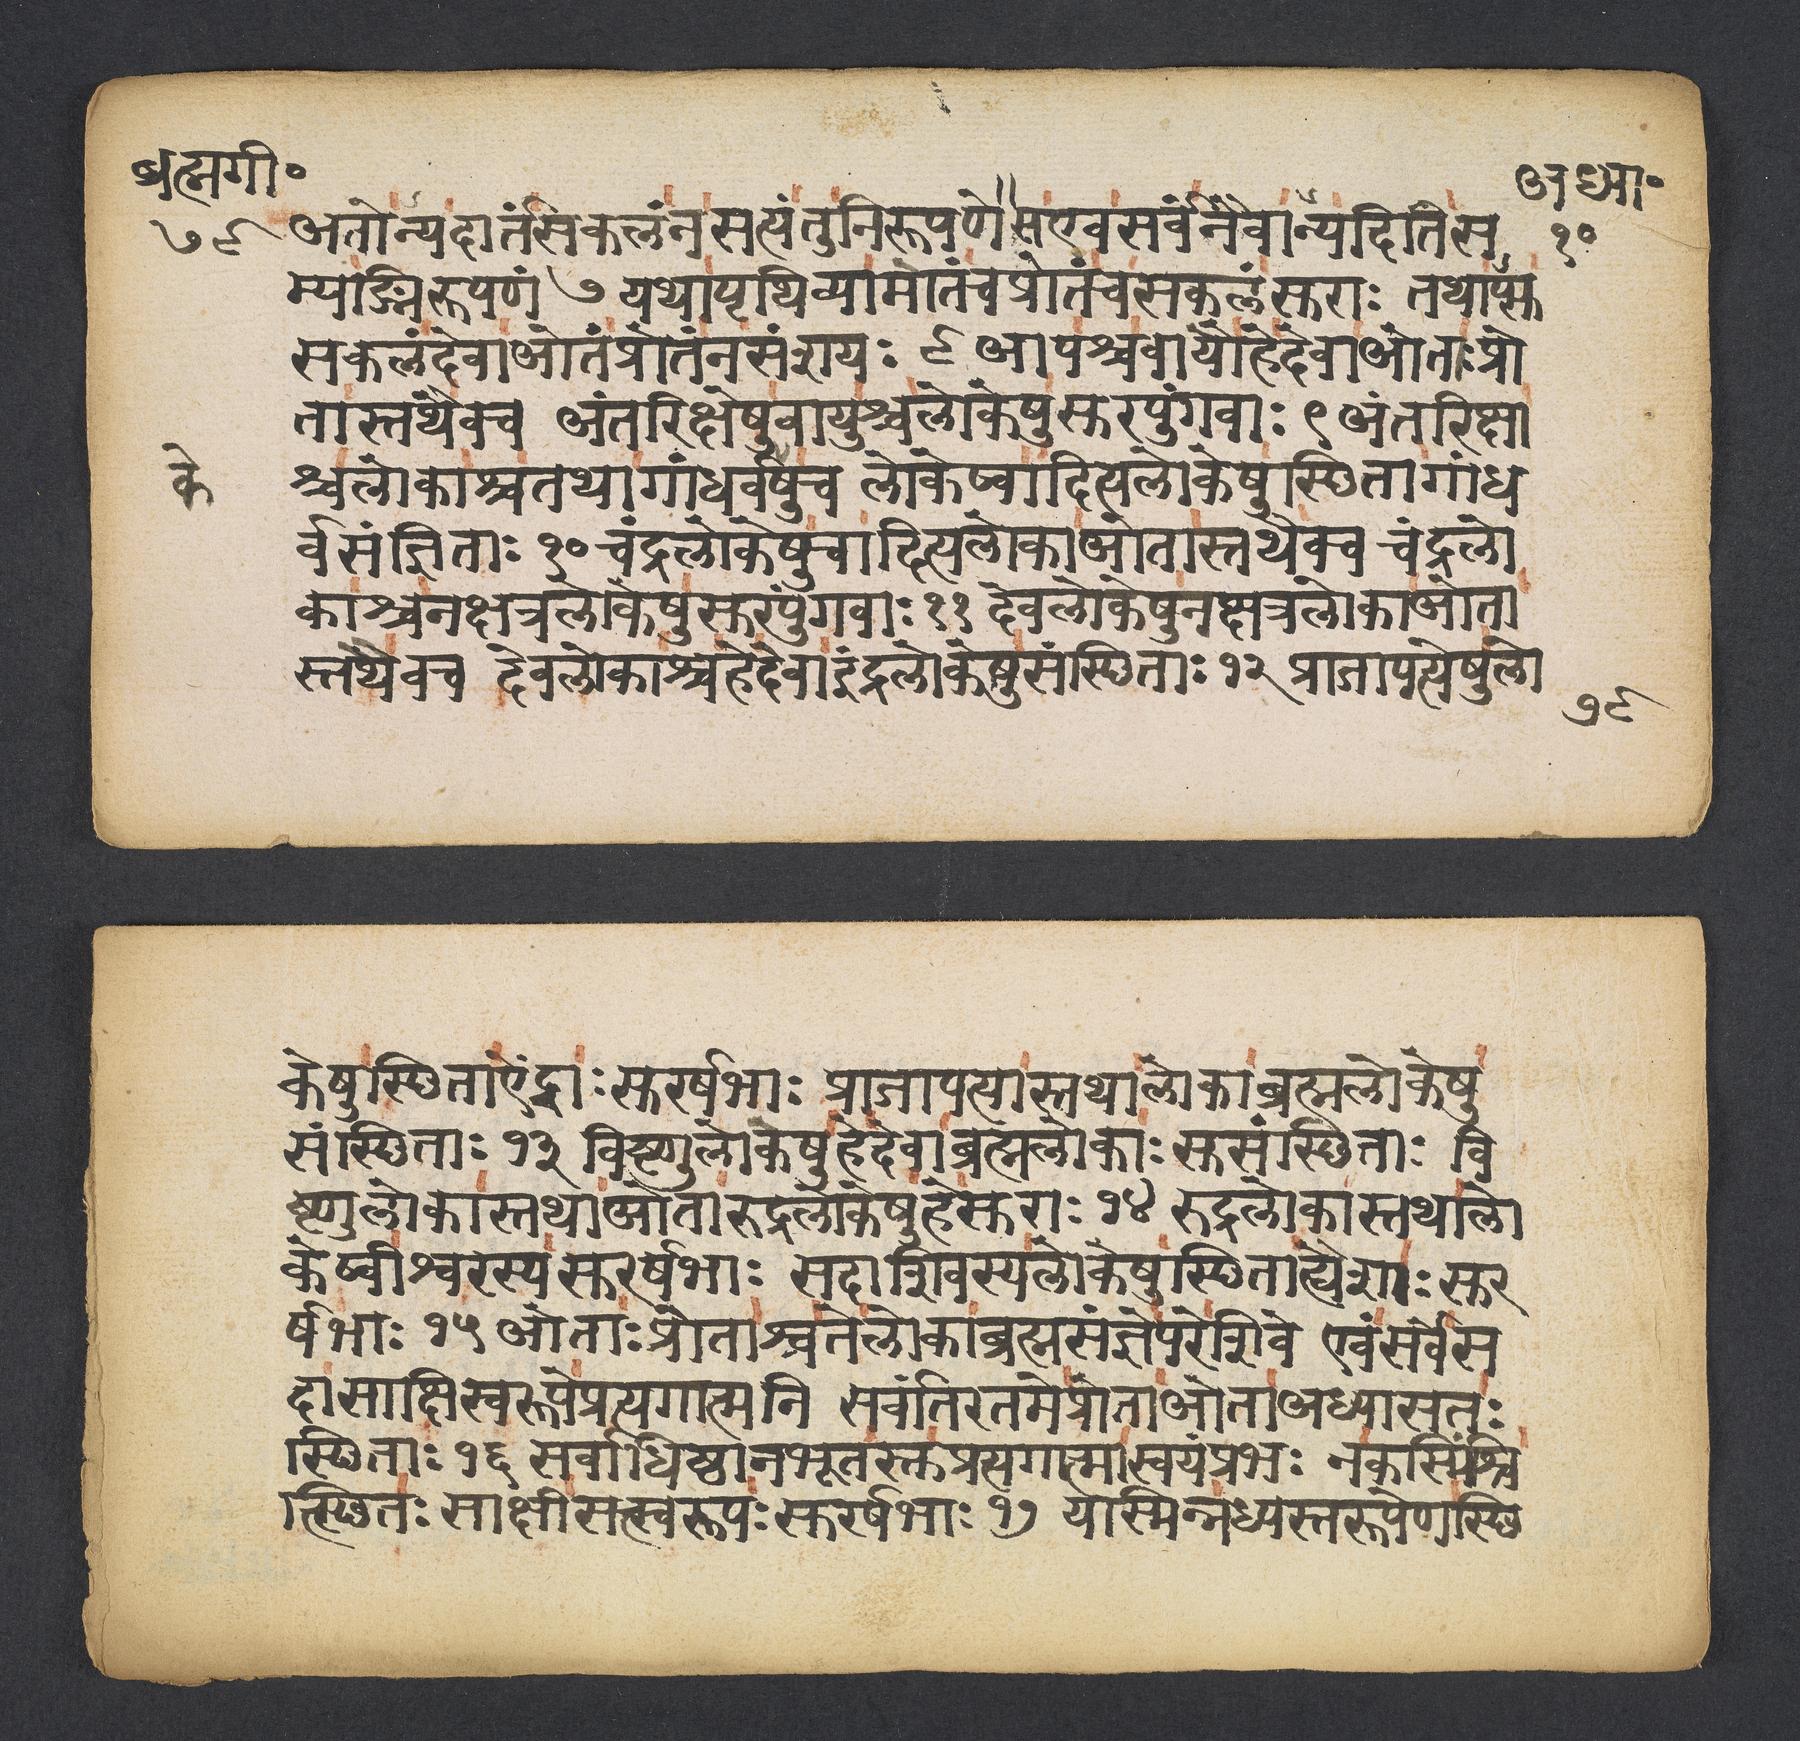 ब्रह्मगी॰
अध्या॰
७९
१०
अतोन्यदार्तंसकलंनसत्यंतुनिरूपणे॥सएवसर्वंनैवान्यदितिस
म्यङ्निरूपणं ७ यथापृथिव्यामोतंचप्रोतंचसकलंसुराः तथाप्सु
सकलंदेवाओतंप्रोतंनसंशयः ८ आपश्चवायौहेदेवाओताःप्रो
तास्तथैवच अंतरिक्षेषुवायुश्चलोकेषुसुरपुंगवाः ९ अंतरिक्षा
के
श्चलोकाश्चतथागांधर्वेषुच लोकेष्वादित्यलोकेषुस्थितागांध
र्वसंज्ञिताः १० चंद्रलोकेषुचादित्यलोकाओतास्तथैवच चंद्रलो
काश्चनक्षत्रलोकेषुसुरपुंगवाः ११ देवलोकेषुनक्षत्रलोकाओता
स्तथैवच देवलोकाश्चहेदेवाइंद्रलोकेषुसंस्थिताः १२ प्राजापत्येषुलो
७९
केषुस्थिताऐंद्राःसुरर्षभाः प्राजापत्यास्तथालोकाब्रह्मलोकेषु
संस्थिताः १३ विष्णुलोकेषुहेदेवाब्रह्मलोकाःसुसंस्थिताः वि
ष्णुलोकास्तथाओतारुद्रलोकेषुहेसुराः १४ रुद्रलोकास्तथालो
केष्वीश्वरस्यसुरर्षभाः सदाशिवस्यलोकेषुस्थिताह्यैशाःसुर
र्षभाः १५ ओताःप्रोताश्चतेलोकाब्रह्मसंज्ञेपरेशिवे एवंसर्वेस
दासाक्षिस्वरूपेप्रत्यगात्मनि सर्वांतरतमेप्रोताओताअध्यासतः
स्थिताः १६ सर्वाधिष्ठानभूतस्तुप्रत्यगात्मास्वयंप्रभः नकस्मिंश्चि
त्स्थितः साक्षीसत्स्वरूपःसुरर्षभाः १७ यास्मिन्नध्यस्तरूपेणस्थि